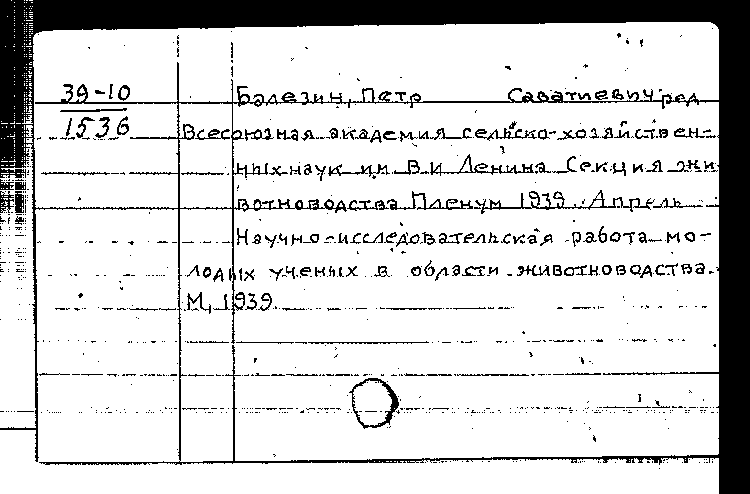 39-10 Балезин, Петр Саватиевич ред
1536 Всесоюзная академия сельско-хозяйствен-
ных наук им В. И Ленина Секция жи
вотноводства Пленум 1939. Апрель
Научно-исследовательская работа мо-
лодых ученых в области животноводства.
М, 1939